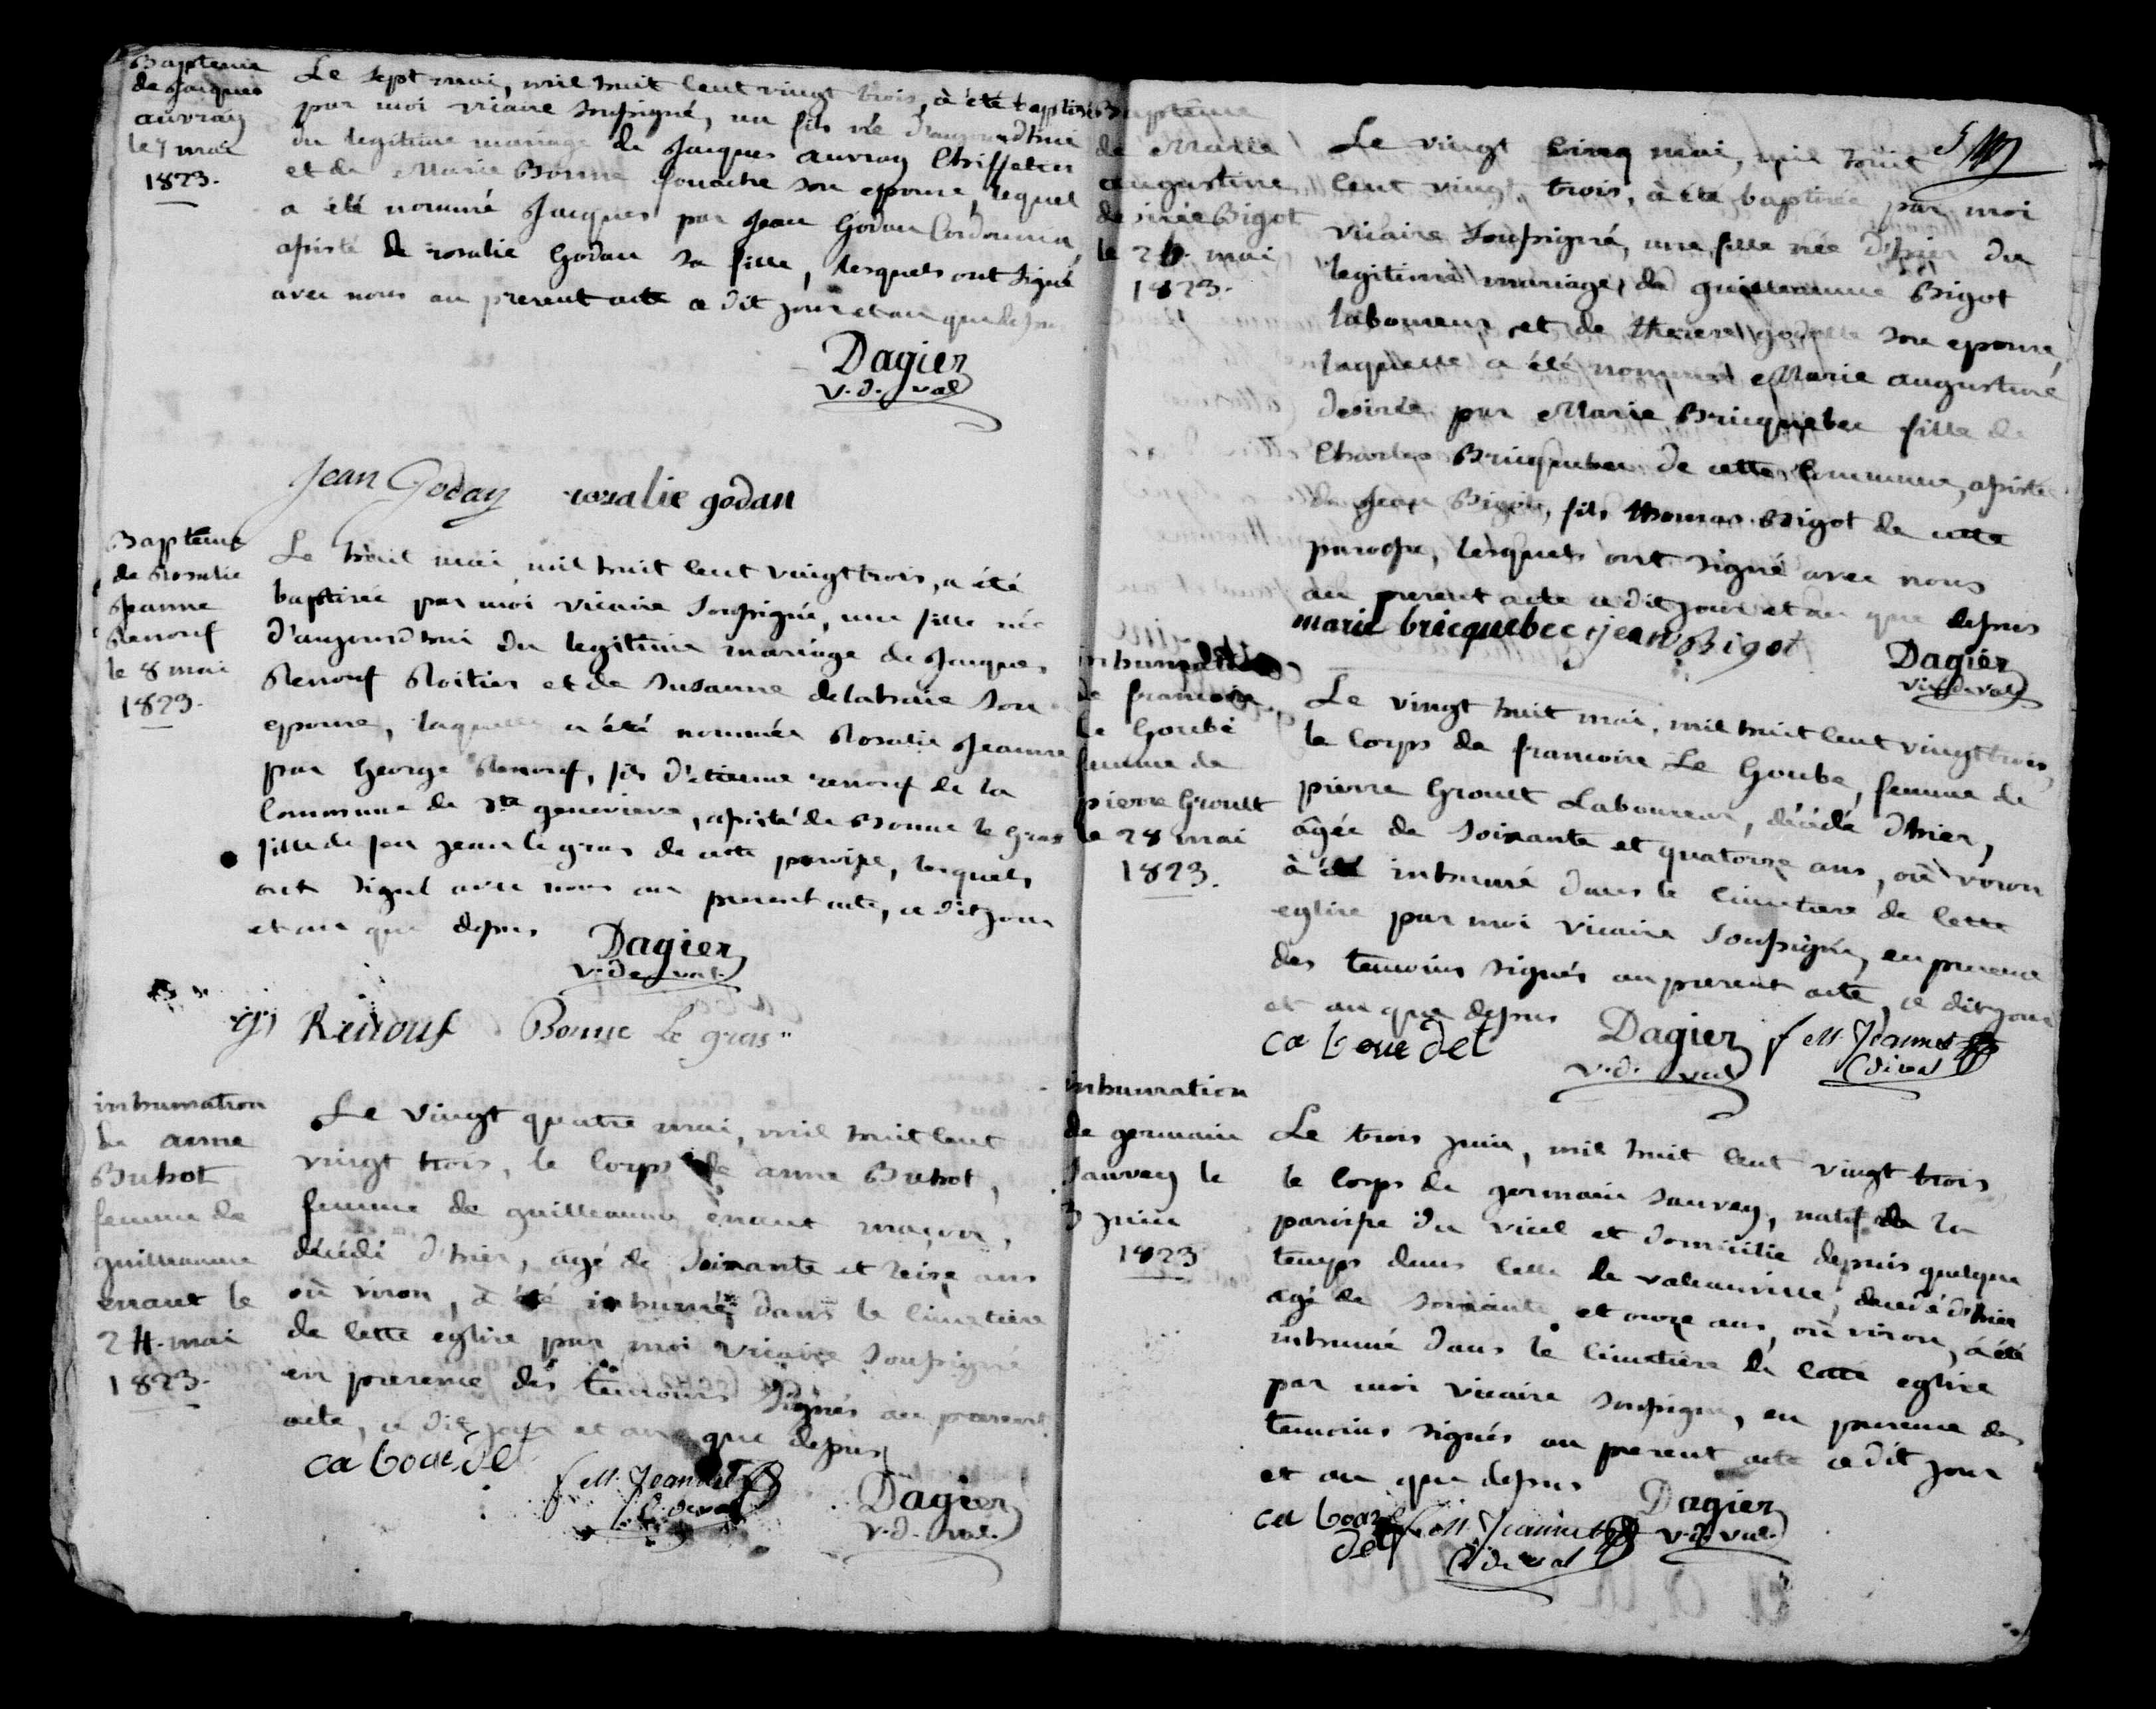 Baptême
de Jacques
auvray
le 7 mai
1823.
Le sept mai, mil huit cent vingt trois, à été baptisé
par moi vicaire soussigné, un fils né d'aujourdhui
du legitime mariage de Jacques auvray Chiffetier
et de Marie Bonne fouache son epouse, lequel
a été nommé Jacques par Jean Godan Cordonnier,
assisté de rosalie Godan sa fille, lesquels ont signé
avec nous au present acte ce dit jour et an que dessus
Dagier
v. d. val
Jean Godan rosalie godan
Baptême
de Rosalie
Jeanne
Renouf
le 8 mai
1823.
Le huit mai mil huit cent vingt trois, a été
baptisée par moi vicaire soussigné, une fille née
d'aujourdhui du legitime mariage de Jacques
Renouf Roitier et de Susanne delahaie son
epouse, laquelle a été nommée Rosalie Jeanne
par George Renouf, fils d'étienne renouf de la
Commune de Ste genevieve, assisté de Bonne le Gras
fille de feu jean le gras de cette paroisse, lesquels
ont signé avec nous au present acte, ce dit jour
et an que dessus
Dagier
v. de val.
gs Renouf Bonne Le gras
inhumation
de anne
Buhot
femme de
guilleaume
enaut le
24. mai
1823.
Le vingt quatre mai, mil huit cent
vingt trois, le corps de anne Buhot,
femme de guilleaume enaut maçon,
décédé d'hier, agé de soixante et treise ans
où viron, à été inhumé dans le cimetiere
de cette eglise par moi vicaire soussigné
en presence des temoins signés au present
acte, ce dit jour et an que dessus
ca bourdet
f M. Jeannet
C. de val
Dagier
v. d. val.
Baptême
de Marie
augustine
desirée Bigot
le 25. mai
1823.
Le vingt cinq mai, mil huit
cent vingt trois, à été baptisée par moi
vicaire soussigné, une fille née d'hier du
legitime mariage de guilleaume Bigot
laboureur et de therese godelle son epouse,
laquelle a été nommée Marie augustine
desirée par Marie Bricquebec fille de
Charles Bricquebec de cette Commune, assistée
de Jean Bigot, fils thomas Bigot de cette
paroisse, lesquels ont signé avec nous
au present acte ce dit jour et an que dessus
marie bricquebec jean Bigot
Dagier
vic de val
inhumation
de francoise
le Goubé
femme de
pierre Groult
le 28 mai
1823.
Le vingt huit mai, mil huit cent vingt trois,
le corps de francoise Le Goube, femme de
pierre Groult Laboureur, décédé d'hier,
âgée de soixante et quatorze ans, où viron
à été inhumé dans le cimetiere de cette
eglise par moi vicaire soussigné, en presence
des temoins signés au present acte, ce dit jour
et an que dessus
ca bourdet
Dagier
v. d. val
f M. Jeannet
C de val
inhumation
de germain
Sauvey le
3 juin
1823
Le trois juin, mil huit cent vingt trois
le corps de germain sauvey, natif de la
paroisse du vicel et domicilié depuis quelque
temps dans celle de valcanville, decedé d'hier
agé de soixante et onze ans, où viron, à été
inhumé dans le cimetiere de cette eglise
par moi vicaire soussigné, en presence des
temoins signés au present acte ce dit jour
et an que dessus
ca bour
det
f M. Jeannet
C de val
Dagier
v. d. val.